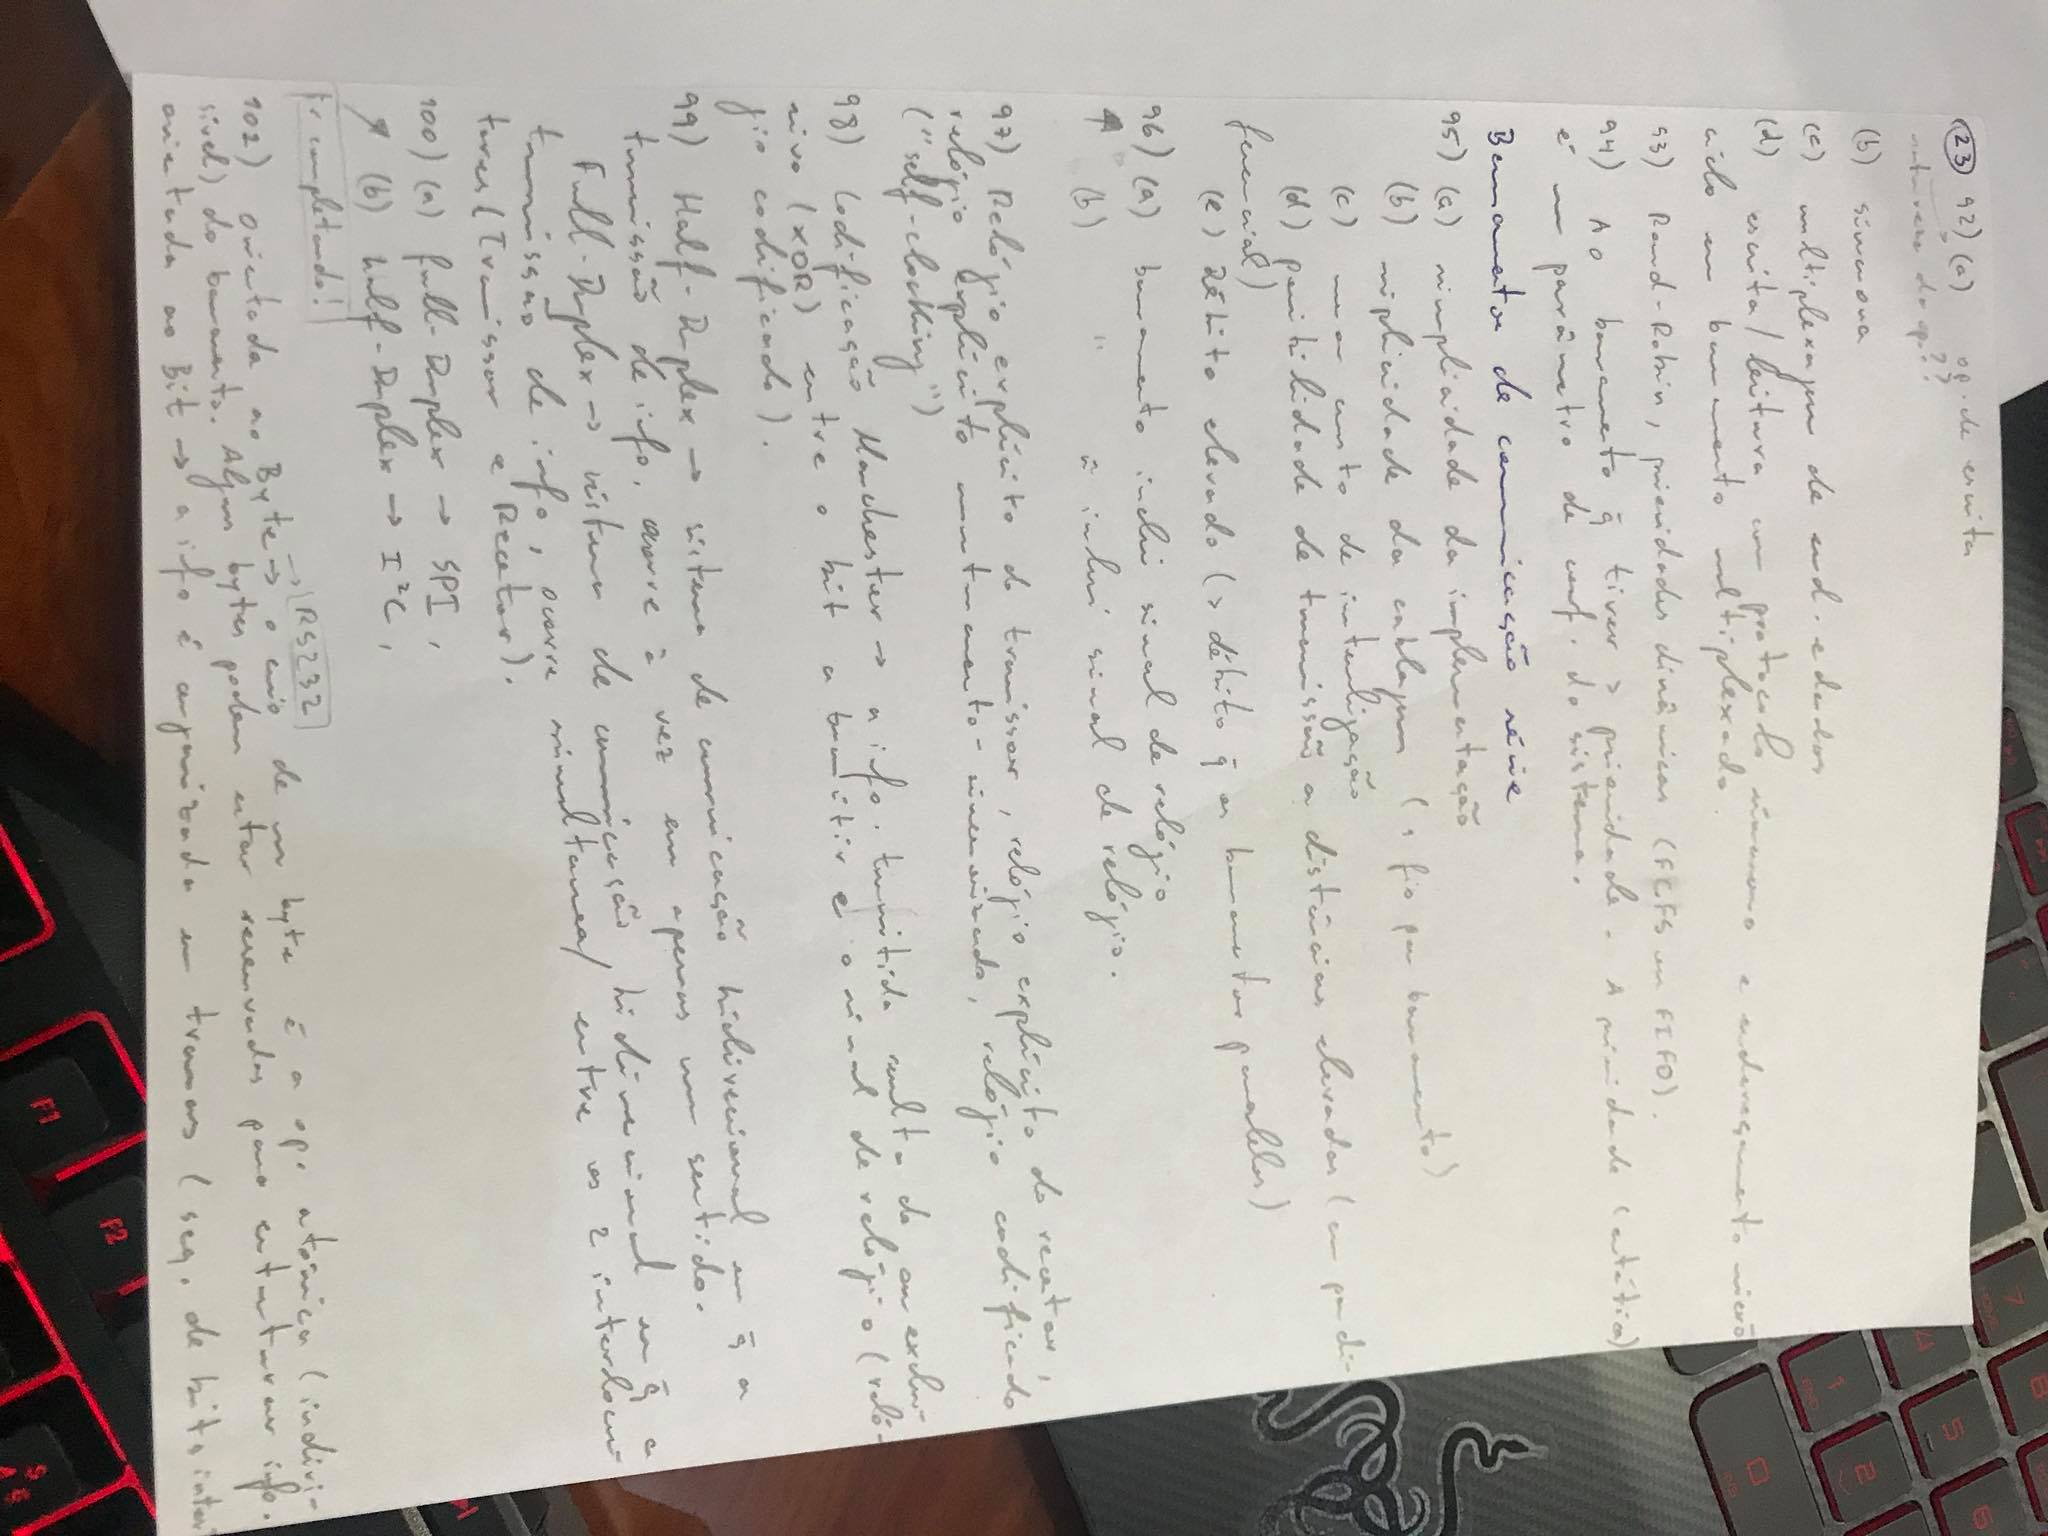 23 92) (a) op. de escrita
natureza da op.??
(b) síncrona
(c) multiplexagem de end. e dados
(d) escrita/leitura com protocolo síncrono e endereçamento micro
ciclo em barramento multiplexado.
93) Round-Robin, prioridades dinâmicas (FCFS ou FIFO).
94) Ao barramento q̄ tiver > prioridade. A prioridade (estática)
é um parâmetro de conf. do sistema.
Barramentos de comunicação série
95) (a) simplicidade da implementação
(b) simplicidade da cablagem ( fio por barramento)
(c) menor custo de
(d) possibilidade de transmissão a distâncias elevadas (em par di-
ferencial)
(e) Débito elevado (> débito q̄ os barramentos paralelos)
96) (a) barramento inclui sinal de relógio
(b) " ñ inclui sinal de relógio.
97) Relógio explícito do transmissor, relógio explícito do recetor,
relógio explícito mutuamente-sincronizado, relógio codificado
("self-clocking")
98) Codificação Manchester → a info. transmitida resulta do ou exclu-
sivo (XOR) entre o bit a transmitir e o sinal de relógio (reló-
gio codificado).
99) Half-Duplex → sistema de comunicação bidirecional em q̄ a
transmissão de info. ocorre à vez em apenas um sentido.
Full-Duplex → sistema de comunicação bidirecional em q̄ a
transmissão de info, ocorre simultanea/ entre os 2 interlocu-
tores (Transmissor e Recetor).
100) (a) full-Duplex → SPI,
(b) half-Duplex → I²C,
Ir completando!
RS232
102) Orientada ao Byte → o envio de um byte é a op. atómica (indivi-
sível) do barramento. Alguns bytes podem estar reservados para estruturar info.
orientada ao Bit → a info é organizada em tramas (seq. de bits inter
7
HOME
8
4
5
6
1
END
2
0
INS
F1
F2
S